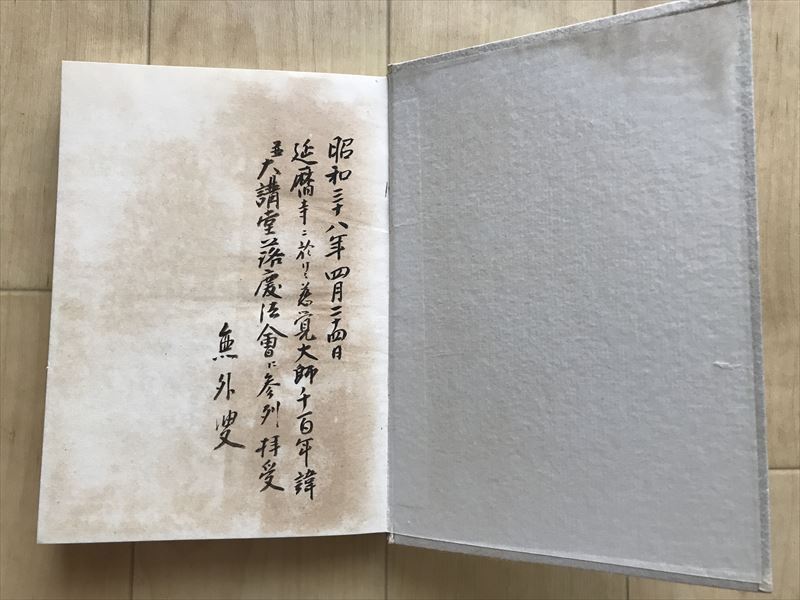 昭和三十八年四月二十四日
延暦寺ニ於ける慈覚大師千百年諱
並大講堂落慶法會ニ参列拝受
無外叟